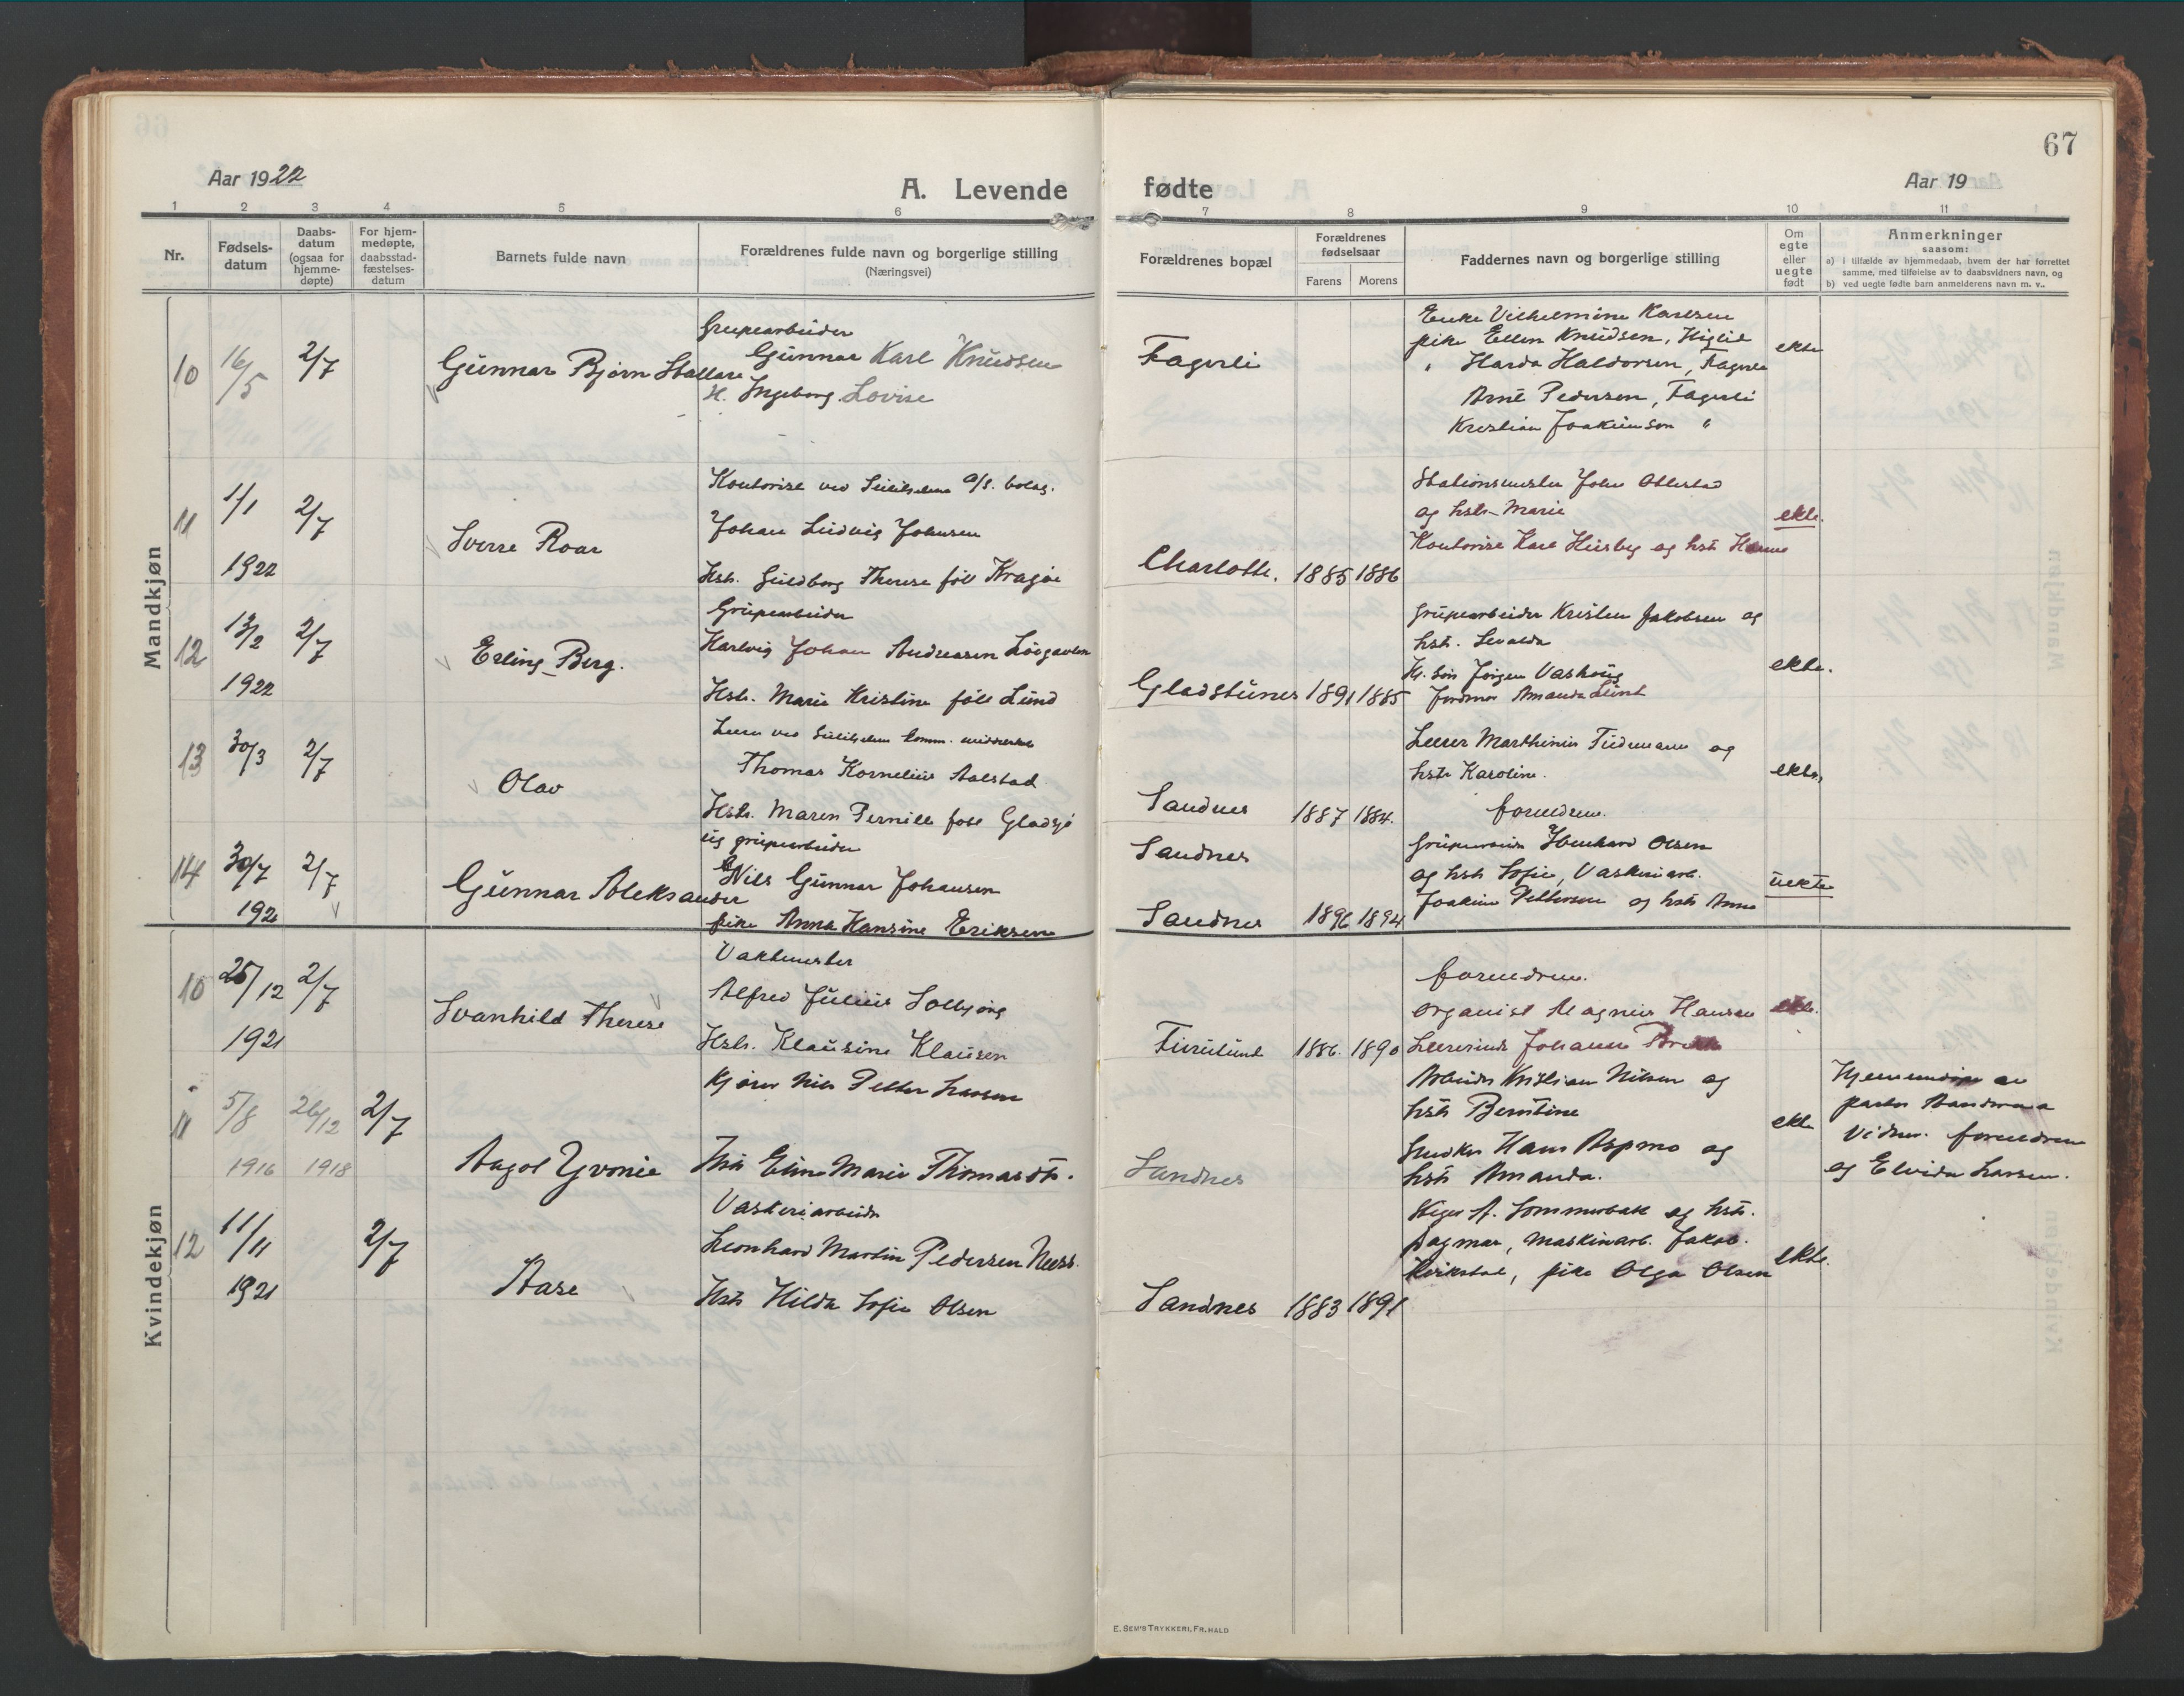 67
Aar 1922
A. Levende
fødte
Aar 19
1 2 3 4 5 6 7 8 9 10 11
Nr.
Fødsels-
datum
Daabs-
datum
(ogsaa for
hjemme-
døpte)
For hjem-
medøpte,
daabsstad-
fæstelses-
datum
Barnets fulde navn
Forældrenes fulde navn og borgerlige stilling
(Næringsvei)
Forældrenes bopæl
Forældrenes
fødselsaar
Farens Morens
Faddernes navn og borgerlige stilling
Om
egte
eller
uegte
født
Anmerkninger
saasom:
a) i tilfælde av hjemmedaab, hvem der har forrettet
samme, med tilføielse av to daabsvidners navn, og
b) ved uegte fødte barn anmelderens navn m. v..
Mandkjøn
10 16/5 2/7
Gunnar Bjørn
Grupearbeider
Gunnar Karl Knudsen
H. Ingeborg Lovise
Fagerli
Enke Vilhelmine Karlsen
pike Ellen Knudsen,
" Harda Haldorsen, Fagerli
Arne Pedersen, Fagerli
Kristian Joakimson "
ekte
11 1/1 2/7
1922
Sverre Roar
Kontorist ved Sulitjelma a/s. bolag.
Johan Ludvig Johnsen
Hstr. Guldborg Therese født Kragøe
Charlotte. 1885 1886
Stationsmester John Otterstad
og hstr. Marie
Kontorist Karl Husby og hstr
ekte.
12 13/2 2/7
1922
Erling Berg.
Grupearbeider
Hartvig Johan Andreasen Løvgavlen
Hstr. Marie Kristine født Lund
Gladstunes 1891 1885
Grupearbeider Kristen Jakobsen og
hstr.
Jørgen
Jordmor Amanda Lund
ekte.
13 30/3 2/7
Olav
Lærer ved Sulitjelma komm.
Thomas Kornelius Aalstad
Hstr. Maren Pernille født Gladsjø
Sandnes 1887 1884.
Lærer Marthinius Tidemann og
hstr Karoline.
forældrene.
ekte.
14 30/7 2/7
1921
Gunnar Aleksander
ug grupearbeider
Nils Gunnar Johansen
pike Anna Hansine Eriksen
Sandnes
Sandnes 1896 1894
Grupearbeider Olsen
og hstr Sofie, Vaskeriarb.
Joakim Pettersen og hstr Anna
uekte
Kvindekjøn
10 25/12 2/7
1921
Svanhild Therese
Vaktmester
Alfred Julius
Hstr. Klausine Klausen
Furulund 1886. 1890
forældrene.
Organist Magnus Hansen
Lærerinde Johanne
ekte.
11 5/8 26/12 2/7
1916 1918
Aagot Yvonie
Kjører Nils Petter Larsen
Hstr Eline Marie Thomasdtr.
Sandnes
Arbeider Kristian Nilsen og
hstr Berntine
Snedker Hans Aspmo og
hstr Amanda.
ekte
Hjemmedøpt av
Vidner. forældrene
og Elvida Larsen.
12 11/11 2/7
1921
Aase
Vaskeriarbeider
Leonhard Martin Pedersen Ness.
Hstr Hilda Sofie Olsen
Sandnes 1883 1891
Stiger A. Sommerbakk og hstr.
Dagmar, maskinarb. Jakob
Kvikstad, pike Olga Olsen
ekte.
E. SEM'S TRYKKERI, FR.HALD